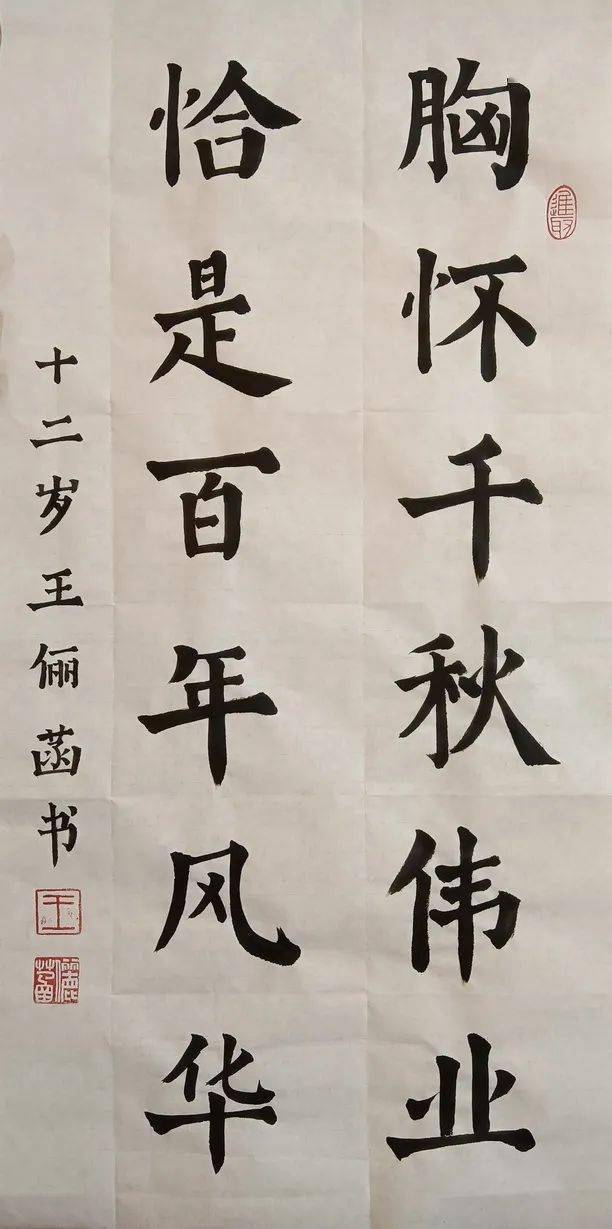 胸怀千秋伟业
進取
恰是百年风华
十二岁王俪菡书
王